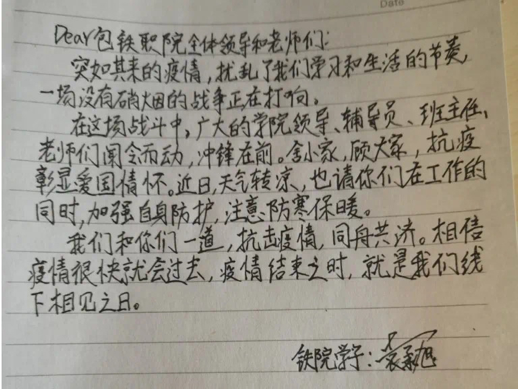 Date
Dear包铁职院全体领导和老师们:
突如其来的疫情,扰乱了我们学习和生活的节奏,
一场没有硝烟的战争正在打响。
在这场战斗中,广大的学院领导、辅导员、班主任、
老师们闻令而动,冲锋在前。舍小家,顾大家,抗疫
彰显爱国情怀。近日,天气转凉,也请你们在工作的
同时,加强自身防护,注意防寒保暖。
我们和你们一道,抗击疫情,同舟共济。相信
疫情很快就会过去,疫情结束之时,就是我们线
下相见之日。
铁院学子: